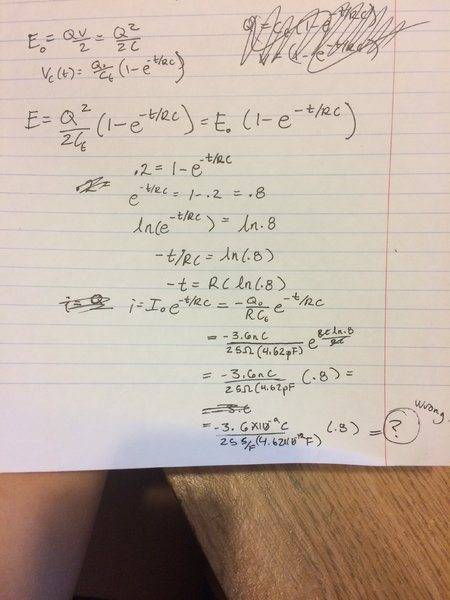 E₀ = QV/2 = Q²/2C
V_C(t) = Q₀/C_t (1-e^-t/RC)
E = Q²/2C_t (1-e^-t/RC) = E₀ (1-e^-t/RC)
.2 = 1-e^-t/RC
e^-t/RC = 1-.2 = .8
ln(e^-t/RC) = ln.8
-t/RC = ln(.8)
-t = RC ln(.8)
i = I₀e^-t/RC = -Q₀/RC_t e^-t/RC
= -3.6nC/25Ω(4.62pF) e^RC ln.8/RC
= -3.6nC/25Ω(4.62pF (.8) =
= -3.6X10^-9 C/25 S/F(4.62X10^-12 F) (.8) = ? wrong